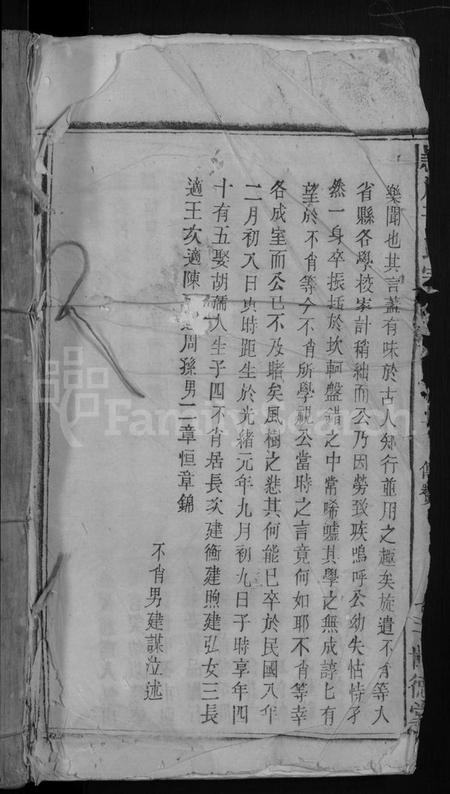 樂聞也其言蓋有味於古人知行並用之趣矣旋遣不肖等入
省縣各學校家計稍絀而公乃因勞致疾嗚呼公幼失怙恃孑
然一身卒振拔於坎軻盤錯之中常唏噓其學之無成諄匕有
望於不肖等今不肖所學視公當時之言竟何如耶不肖等幸
各成室而公已不及睹矣風樹之悲其何能已卒於民國八年
二月初八日寅時距生於光緒元年九月初九日子時享年四
十有五娶胡孺人生子四不肖居長次建衡建煦建弘女三長
適王次適陳 適周孫男二章恒章錦
不肖男建謀泣述
傳贊
三 德堂
FamilySearch